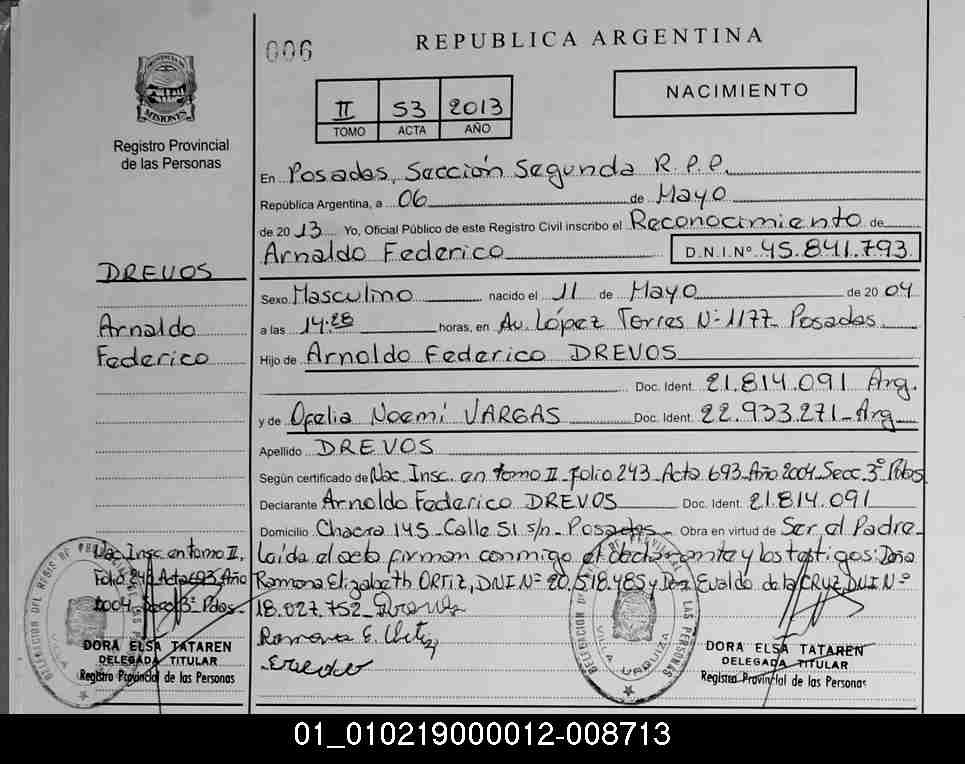 006
REPUBLICA ARGENTINA
PROVINCIA DE
MISIONES
Registro Provincial
de las Personas
II 53 2013
TOMO ACTA AÑO
NACIMIENTO
En Posadas, Sección Segunda R.P.P.
República Argentina, a 06 de Mayo
de 2013 Yo, Oficial Público de este Registro Civil inscribo el Reconocimiento de
Arnaldo Federico D.N.I.Nº 45.841.793
DREVOS
Arnaldo
Federico
Sexo Masculino nacido el 11 de Mayo de 2004
a las 14:28 horas, en Av. López Torres Nº 1177 Posadas
Hijo de Arnoldo Federico DREVOS
Doc. Ident. 21.814.091 Arg.
y de Ofelia Noemi VARGAS Doc. Ident. 22.933.271 Arg
Apellido DREVOS
Según certificado de Nac Insc. en tomo II Folio 243 Acta 693 Año 2004 Secc. 3º Pdas
Declarante Arnoldo Federico DREVOS Doc. Ident. 21.814.091
Domicilio Chacra 145 Calle 51 s/n Posadas Obra en virtud de Ser el Padre
Leída el acta firman conmigo el declarante y los testigos: Doña
Ramona Elizabeth ORTIZ, DNI Nº 20.518.485 y Don Evaldo de la CRUZ DNI Nº
18.027.752
Ramona E. Ortiz
Nac Insc. en tomo II
Folio 243 Acta 693 Año
2004 Secc 3º Pdas
DORA ELSA TATAREN
DELEGADA TITULAR
Registro Provincial de las Personas
DELEGACION DEL REGIS DE LAS PERSONAS
VILLA URQUIZA
DORA ELSA TATAREN
DELEGADA TITULAR
Registro Provincial de las Personas
01_010219000012-008713